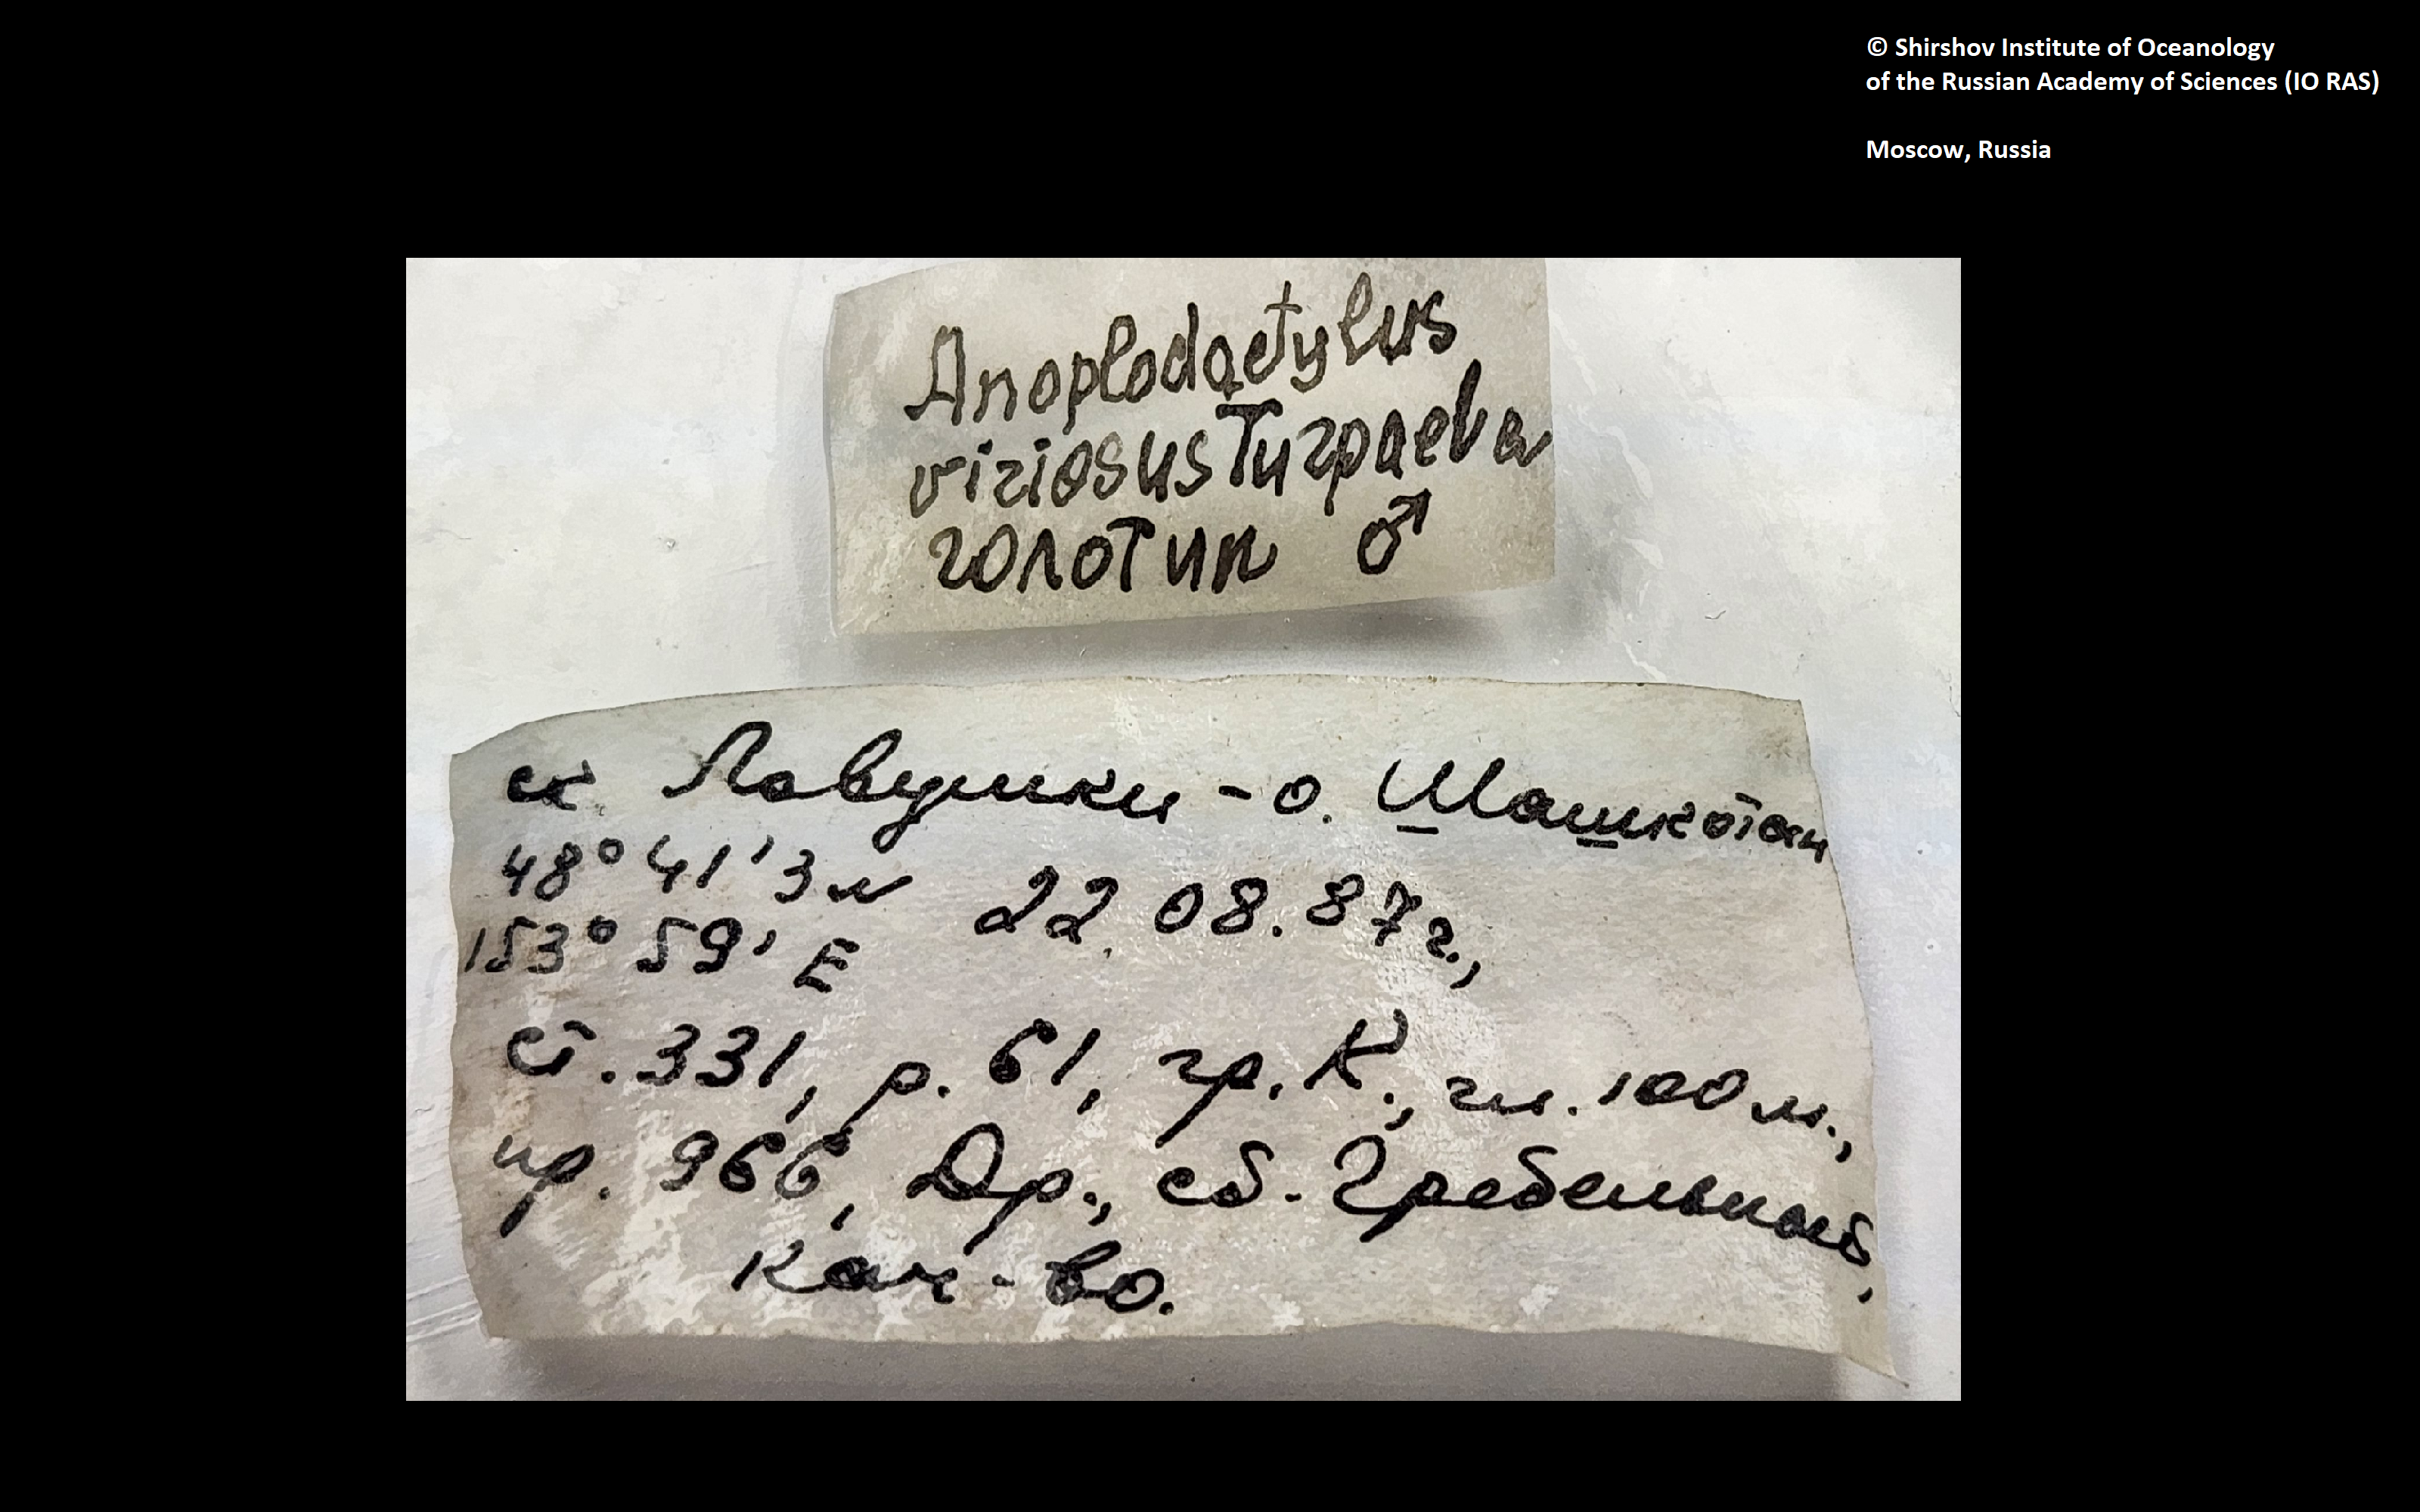 © Shirshov Institute of Oceanology
of the Russian Academy of Sciences (IO RAS)
Moscow, Russia
Anoplodactylus
viziosus Турpaeva
голотип ♂
ск. Ловушки - о. Шашкотан
48° 41' 3 N 22.08.87г.,
153° 59' E
ст. 331, р. 61, гр. К., гл. 100 м.,
пр. 966, Др., сб. Гребельный,
кач-во.